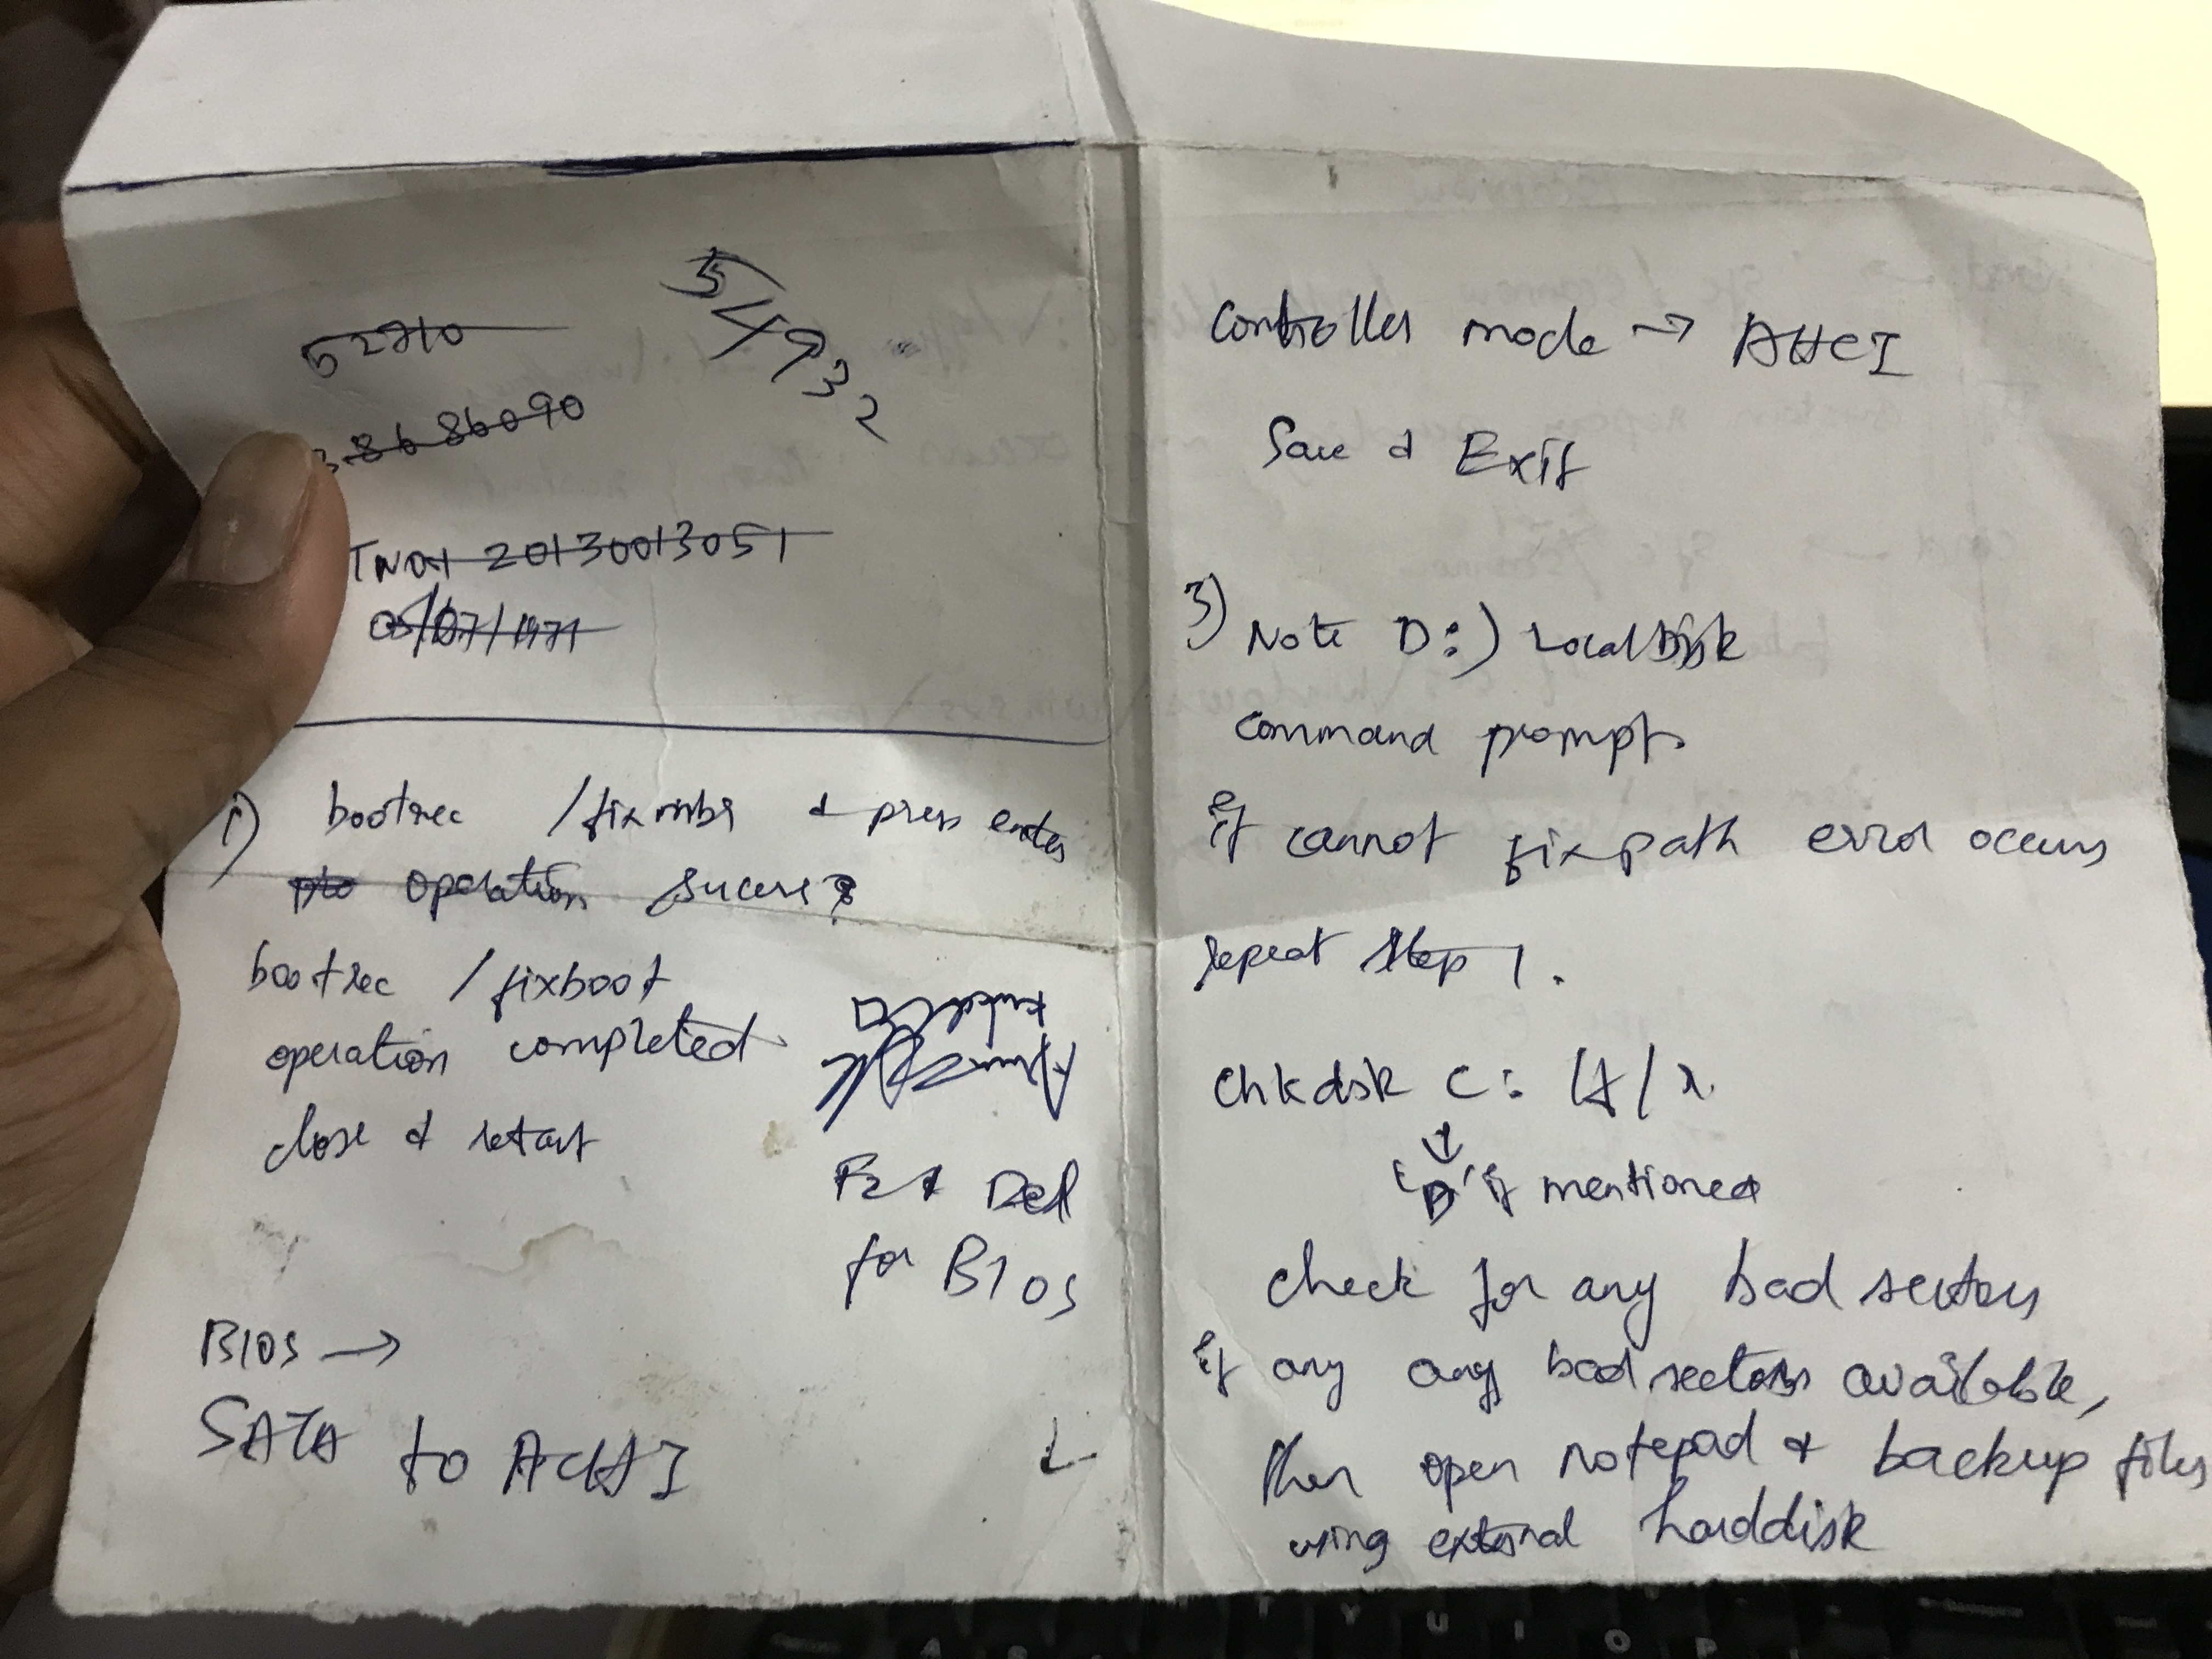 52710
54932
8686090
TN01 20130013051
05/07/1971
1) bootrec /fixmbr & press enter
operation sucess?
bootrec /fixboot
operation completed
close & restart
F2 & Del
for BIOS
BIOS →
SATA to ACHI
Controller mode → AHCI
Save & Exit
3) Note D:) Local Disk
command prompt
if cannot fix path error occurs
repeat step 1.
Chkdsk C: /f /r
↓
'D' if mentioned
check for any bad sectors
if any any bad sectors available,
then open notepad & backup files
using external harddisk